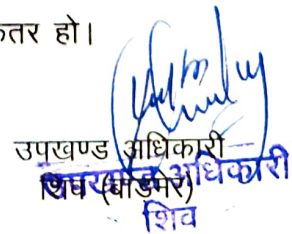 तर हो।
उपखण्ड अधिकारी
शिव (बाडमेर)
उपखण्ड अधिकारी
शिव